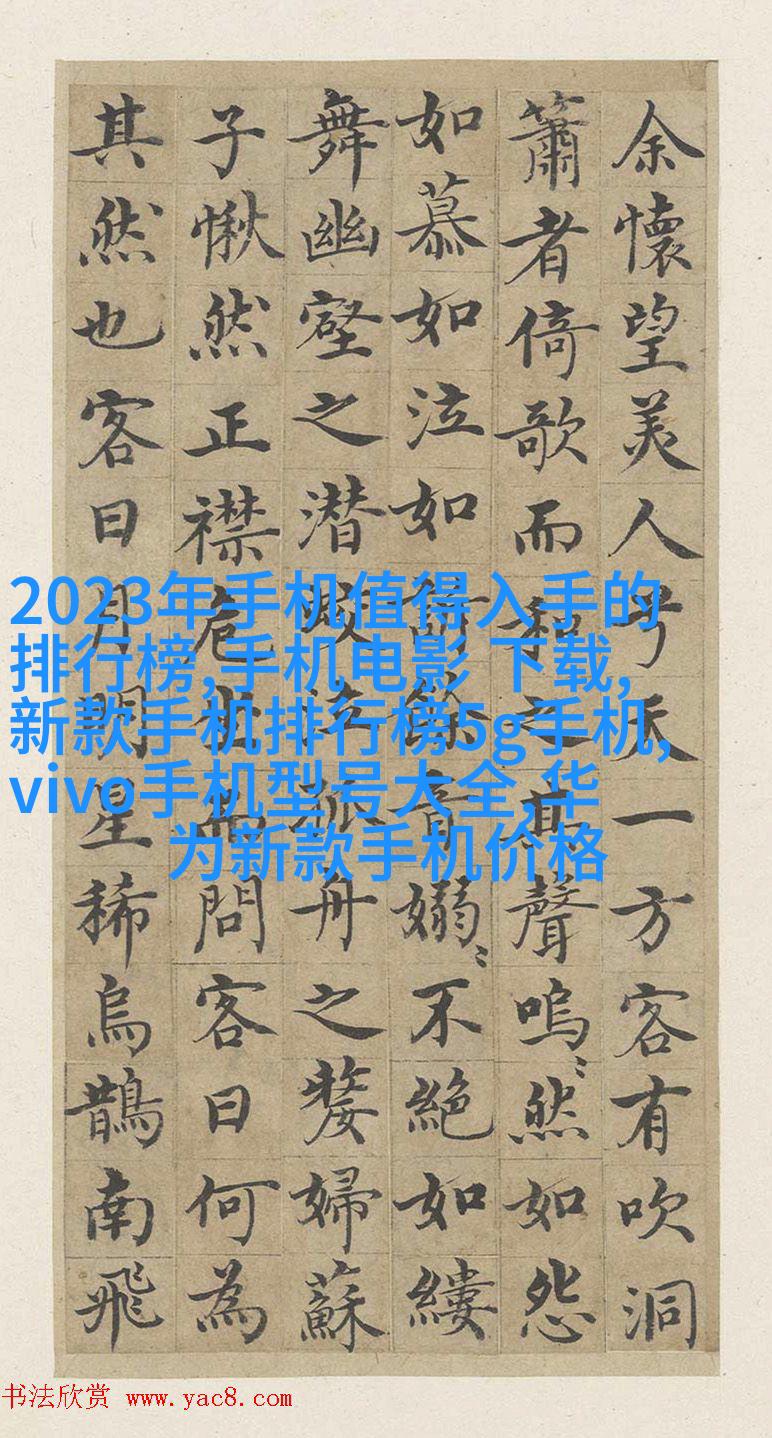 余懷望美人兮天一方客有吹洞
簫者倚歌而和之其聲嗚〻然如怨
如慕如泣如訴餘音嫋〻不絕如縷
舞幽壑之潜蛟泣孤舟之嫠婦蘇
子愀然正襟危坐而問客曰何為
其然也客曰月明星稀烏鵲南飛
2023年手机值得入手的
排行榜,手机电影 下载,
新款手机排行榜5g手机,
vivo手机型号大全,华
为新款手机价格
书法欣赏 www.yac8.com